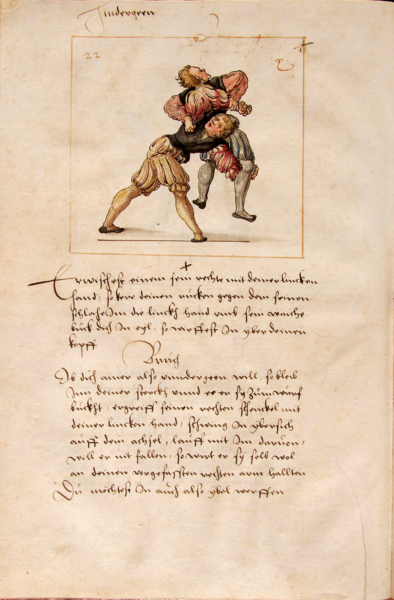 Hindergeen
22
Erwischest einem sein rechte mit deiner lincken
hand, so kere deinen rucken gegen dem seinen
schlahe Im die linckh hand umb sein
buck dich In eyl, so wirffest In yber deinen
kopff
Bruch
Ob dich ainer also undergeen will, so bleib
Inn deiner sterckh unnd ee er sy zum wurf
buckht, ergreiff seinen rechten schenckel mit
deiner lincken hand, schwing In ybersich
auff dein achsel, lauff mit Im darvon,
will er nit fallen, so wirt er sy selb wol
an deinen vorgefassten rechten arm hallten
Du mechtest In auch also wol werffen